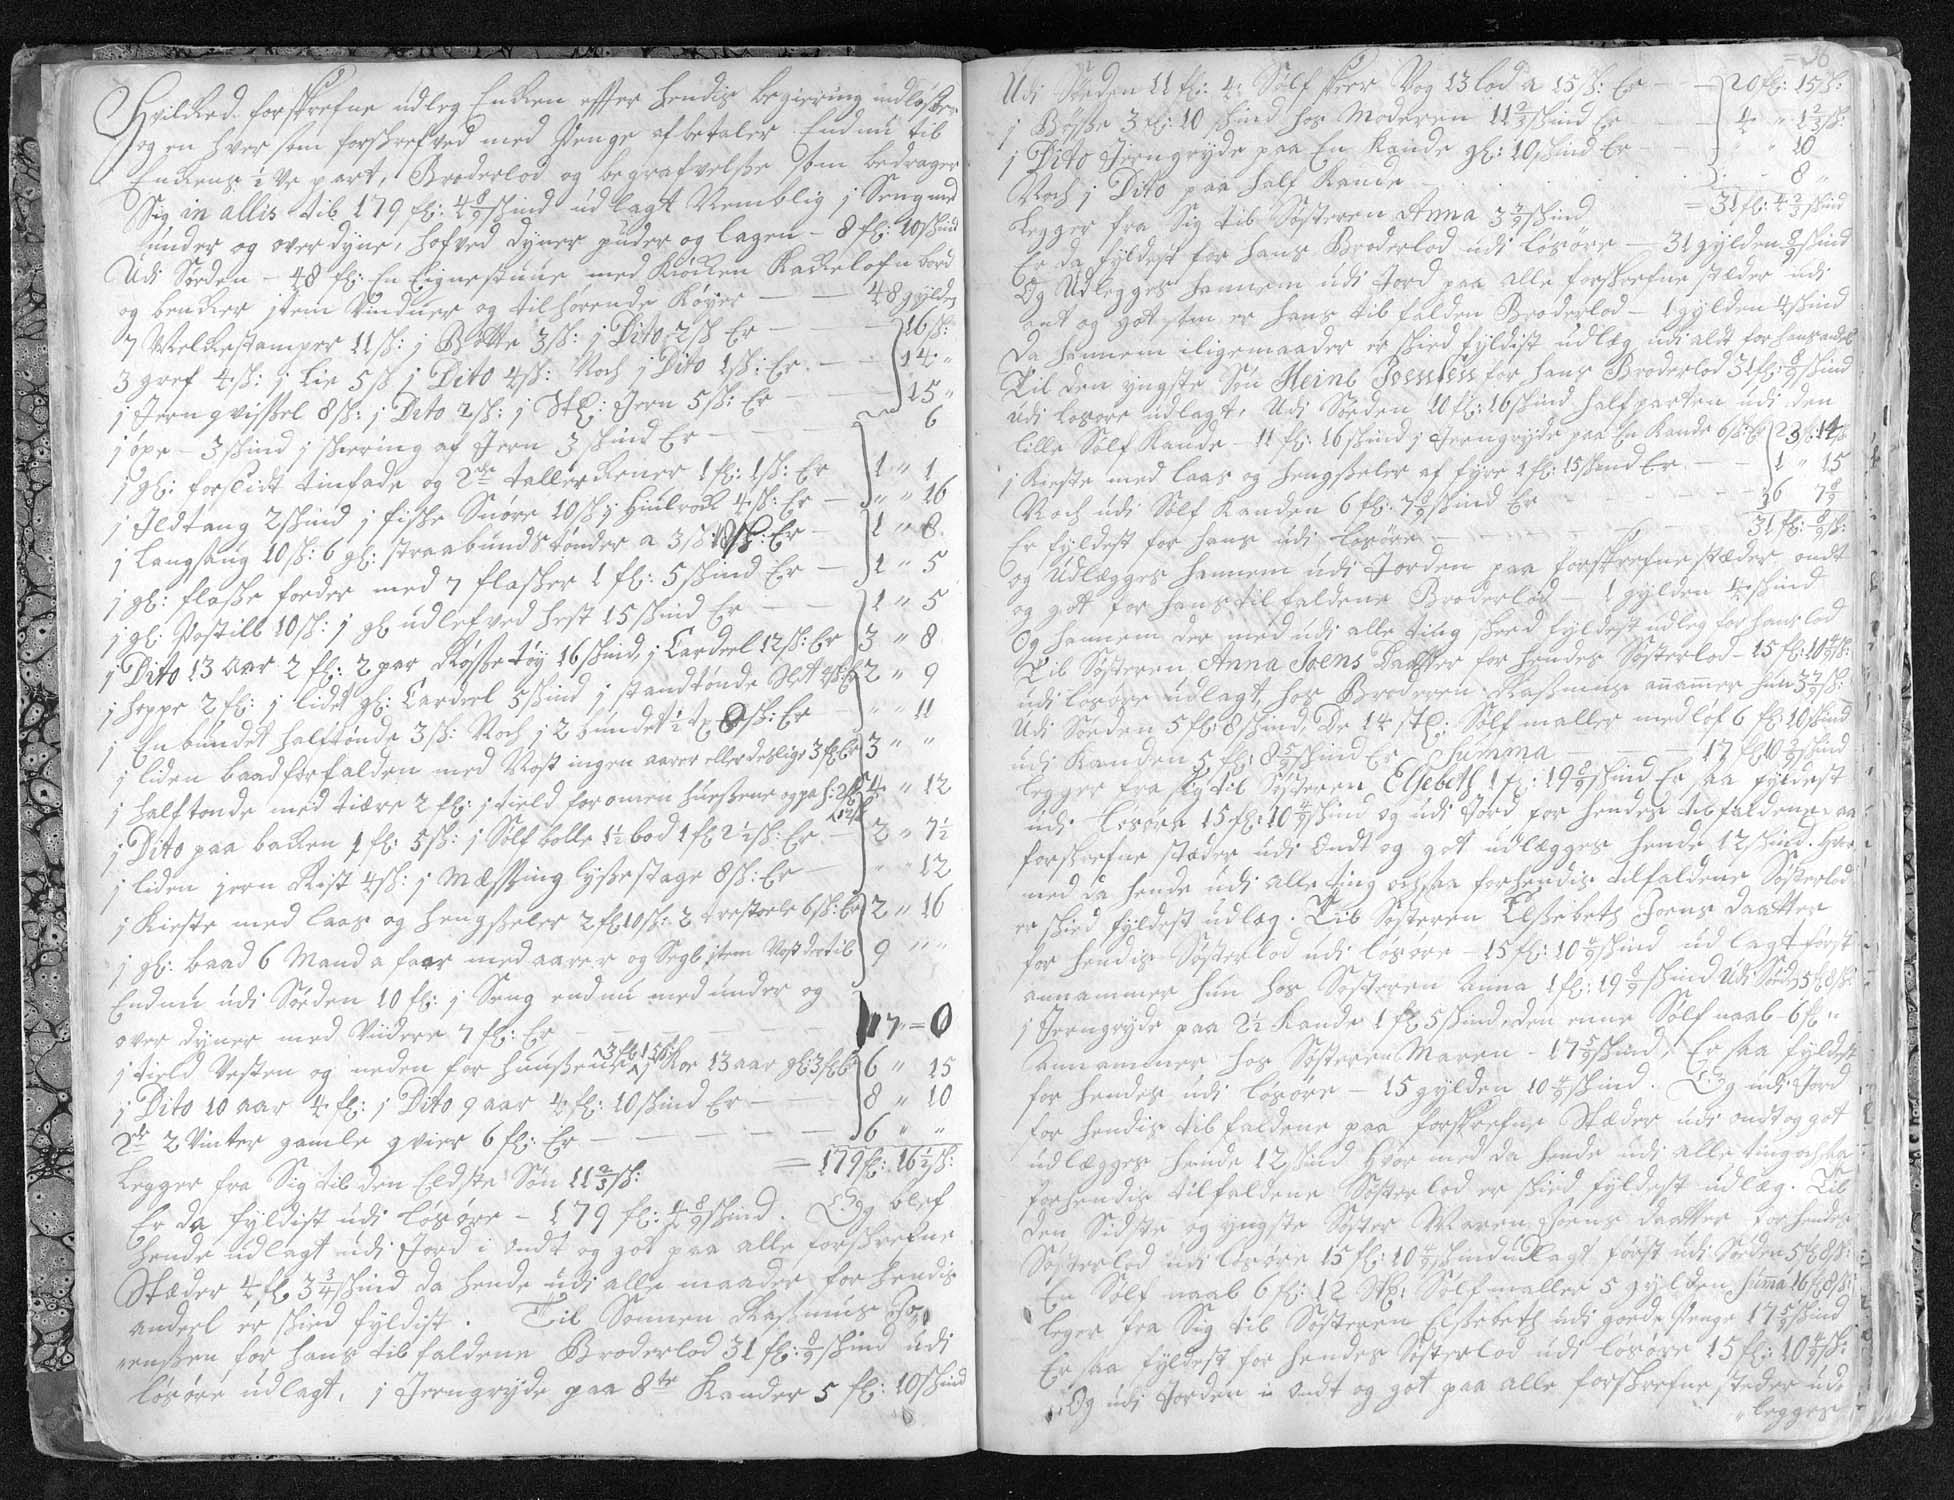 Hvilked forskrefne udleg Enken effter hendis begiering indløser
og en hver som forskrefved med Penge afbetaler. End nu til
Enkens i Ve part, Broderlod og begrafvelse som bedrager
Sig in allis til 179 fl: 4 8/9 skind udlagt Nemblig j Seng med
under og over dyne, hofved dyner puder og lagen - 8 fl: 10 skind
Udi Sørden - 48 fl: En Eignestuue med Kiøkken Kakelofn bord
og benker jtem Vinduer og tilhørende Køyer - 48 gylden
7 Melkestamper 11 sk: j Bøtte 3 sk: j Dito 2 sk Er - 16 sk:
3 gref 4 sk: j Lie 5 sk j Dito 4 sk: Noch j Dito 1 sk: Er - 14 "
j Jerngvissel 8 sk: j Dito 2 sk: j Stk: Jern 5 sk: Er - 15 "
j øxe - 3 skind j skiering af Jern 3 skind Er - 6
j gl: forslidt tinfade og 2de tallerkener 1 fl: 1 sk: Er 1 " 1
j Jldtang 2 skind j fiske Snøre 10 sk j Huilrock 4 sk: Er - " " 16
j Langsaug 10 sk: 6 gl: straabunds tønder a 3 sk: 18 sk: Er - 1 " 8
j gl: flaske foeder med 7 flasker 1 fl: 5 skind Er - 1 " 5
j gl: Postill 10 sk: j gl udlefved hest 15 skind Er - 1 " 5
j Dito 13 aar 2 fl: 2 par Køysse tøy 16 skind, j Cardeel 12 sk: Er 3 " 8
j hoppe 2 fl: j lidet gl: Cardeel 5 skind j standtønde Slet 4 sk: Er 2 " 9
j Enbundet halftønde 3 sk: Noch j 2 bundet ½ tr 8 sk: Er " " 11
j liden baad forfalden med Nost ingen aarer eller deslige 3 fl Er 3 " "
j halftonde med tiære 2 fl: j tield for omen huusene og paa h: 2 fl 12 sk Er 4 " 12
j Dito paa bakken 1 fl: 5 sk: j Sølf bolle 1½ lod 1 fl 2½ sk: Er - 2 " 7½
j liden jern Rist 4 sk: j Messing lysestage 8 sk: Er - " " 12
j Kieste med laas og hengseler 2 fl 10 sk: 2 trestoele 6 sk: Er 2 " 16
j gl: baad 6 Mands faar med aarer og Segl jtem Nost dertil 9 " "
Endnu udi Sørden 10 fl: j Seng endnu med under og
over dyner med Viidere 7 fl: Er - 17 " = 0
j tield Vesten og neden for huusene 3 fl: 15 sk j Koe 13 aar gl: 3 fl Er 6 " 15
j Dito 10 aar 4 fl: j Dito 9 aar 4 fl: 10 skind Er - 8 " 10
2de 2 Vinter gamle qvier 6 fl: Er - 6 " "
= 179 fl: 16½ sk:
Legger fra Sig til den Eldste Søn 11 2/3 sk:
Er da fyldist udi løsøre - 179 fl: 4 8/9 skind. Og blef
hende udlagt udi Jord i ondt og got paa alle forskrefne
Stæder 4 fl 3 3/4 skind da hende udi alle maader for hendis
andeel er skied fyldist. Til Sønnen Rasmus Jo-
"ensen for hans tilfaldene Broderlod 31 fl: 8/9 skind udi
løsøre udlagt, j Jerngryde paa 8te Kander 5 fl: 10 skind
36
Udi Sørden 11 fl: 4 Sølf skeer Vog 13 lod a 15 sk: Er - 20 fl: 15 sk:
j Bøsse 3 fl: 10 skind hos Moderen 11 2/3 skind Er 4 " 1 2/3 sk:
j Dito Jerngryde paa En Kande gl: 10 skind Er - " 10
Noch j Dito paa half Kande - 8 "
= 31 fl: 4 2/3 skind
Legger fra Sig til Søsteren Anna 3 7/9 skind
Er da fyldest for hans Broderlod udi løsøre - 31 gylden 8/9 skind
Og Udlegges hannem udi Jord paa alle forskrefne stæder udi
ont og got som er hans tilfalden Broderlod - 1 gylden 4 skind
Da hannem iligemaader er skied fyldist udlæg udi aldt for hans andel
Til den yngste Søn Heinb Joensen for hans Broderlod 31 fl: 8/9 skind
udi løsøre udlagt, Udi Sørden 10 fl: 16 skind halfparten udi den
lille Sølf Kande - 11 fl: 16 skind j Jerngryde paa En Kande 6 sk: Er 23 fl: 14 sk
j Kieste med laas og hengseler af fyre 1 fl: 15 skind Er - 1 " 15
Noch udi Sølf Kanden 6 fl: 7 8/9 skind Er - 6 7 8/9
31 fl: 8/9 sk:
Er fyldest for hans udi løsøre -
og Udlægges hannem udi Jorden paa forskrefne stæder ondt
og got for hans tilfaldene Broderlod - 1 gylden 4 skind
Og hannem der med udi alle ting skeed fyldest udleg for hans lod
Til Søsteren Anna Joens Daatter for hendes Søsterlod - 15 fl: 10 4/9 sk:
udi løsøre udlagt, hos Broderen Rasmus anammer hun 3 7/9 sk:
Udi Sørden 5 fl: 8 skind, De 14 stk: Sølf maller med løf 6 fl: 10 skind
udi Kanden 5 fl: 8 5/9 skind Er Summa - 17 fl 10 3/9 skind
legger fra Sig til Søsteren Elsebeth 1 fl: 19 8/9 skind Er saa fyldest
udi løsøre 15 fl: 10 4/9 skind og udi Jord for hendes tilfaldene paa
forskrefne stæder udi Ondt og got udlægges hende 12 skind. Hvor
med da hende udi alle ting ochsaa for hendis tilfaldene Søsterlod
er skied fyldest udlæg. Til Søsteren Elsebeth Joens daatter
for hendis Søsterlod udi løsøre - 15 fl: 10 4/9 skind udlagt først
annammer hun hos Søsteren Anna 1 fl: 19 8/9 skind Udi Sørden 5 fl 8 sk:
j Jerngryde paa 2½ Kande 1 fl 5 skind, den enne Sølf naal - 6 fl "
annammer hos Søsteren Maren - 17 5/9 skind, Er saa fyldest
for hendes udi løsøre - 15 gylden 10 4/9 skind. Og udi Jord
for hendis tilfaldene paa forskrefne Stæder udi ondt og got
udlægges hende 12 skind hvor med da hende udi alle ting ochsaa
for hendis tilfaldene Søsterlod er skied fyldest udlæg. Til
den Sidste og yngste Søster Maren Joens daatter for hendes
Søsterlod udi løsøre 15 fl: 10 4/9 skind udlagt først udi Sørden 5 fl: 8 sk:
En Sølf naal 6 fl: 12 Stk: Sølf maller 5 gylden Suma 16 fl 8 sk:
leger fra Sig til Søsteren Elsebeth udi goede Penge 17 5/9 skind
Er saa fyldest for hendes Søsterlod udi løsøre 15 fl: 10 4/9 sk:
Og udi Jorden i ondt og got paa alle forskrefne steder ud-
"legges